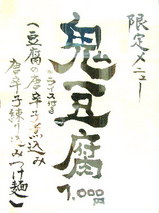 限定メニュー
鬼豆腐
1,000円
ライス付き
(豆腐の唐辛子煮込み
唐辛子練り込みつけ麺)